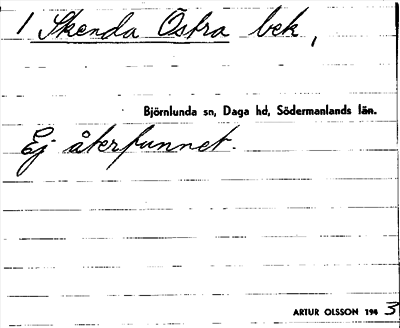 1 Skenda Östra bek,
Björnlunda sn, Daga hd, Södermanlands län.
Ej återfunnet.
ARTUR OLSSON 194 3